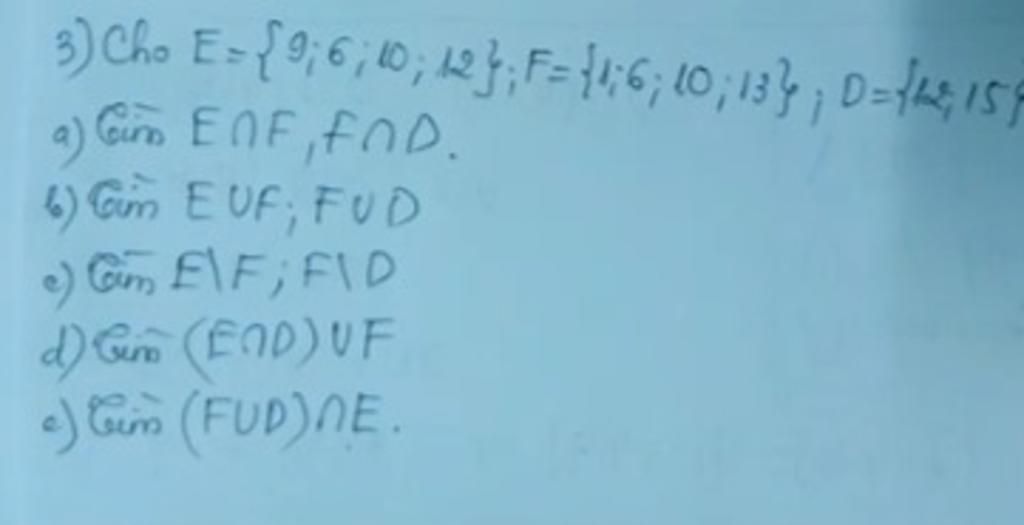 3) Cho E = {9; 6; 10; 12}; F = {1; 6; 10; 13}; D = {12; 15}
a) Tìm E ∩ F, F ∩ D.
b) Tìm E ∪ F; F ∪ D
c) Tìm E \ F; F \ D
d) Tìm (E ∩ D) ∪ F
e) Tìm (F ∪ D) ∩ E.